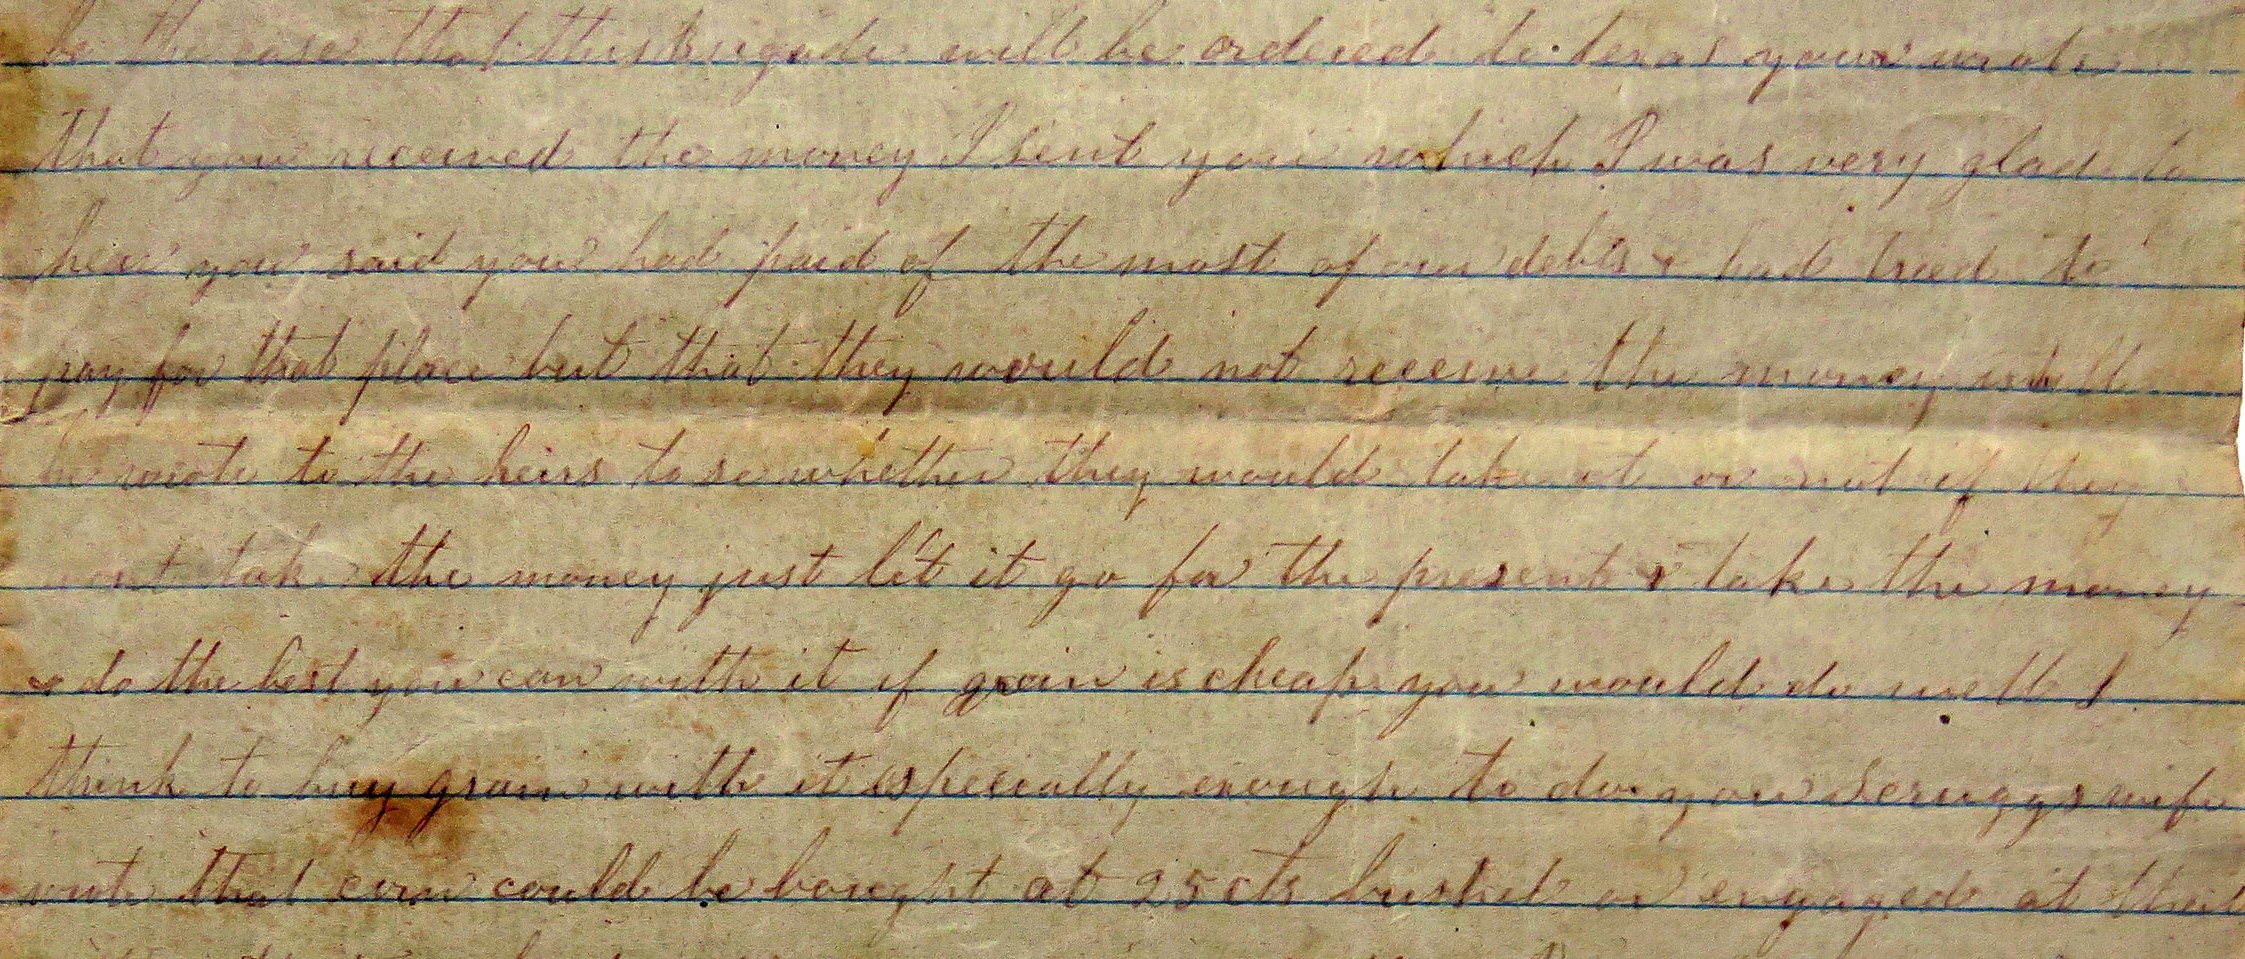 be the case that this Brigade will be ordered to texas you wrote
that you received the money I sent you which I was very glad to
hear you said you had paid of the most of our debts & had tried to
pay for that place but that they would not receive the money untill
he wrote to the heirs to se whether they would take it or not if they
wont take the money just let it go for the present & take the money
& do the best you can with it if grain is cheap you would do well I
think to buy grain with it especially enough to do you Scruggs wife
wrote that corn could be bought at 25 cts bushel or engaged at that